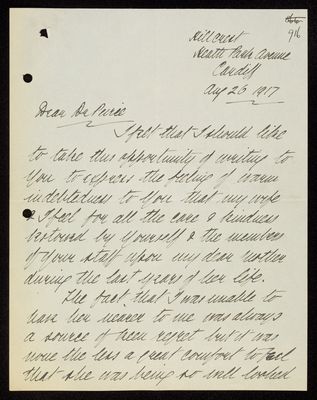 66
916
Hillcrest
Heath Park Avenue
Cardiff
Aug 26 1917
Dear Dr Peirce
I felt that I should like
to take this opportunity of writing to
you to express the feeling of warm
indebtedness to you that my wife
& I feel for all the care & kindness
bestowed by yourself & the members
of your staff upon my dear mother
during the last years of her life.
The fact that I was unable to
have her nearer to me was always
a source of keen regret but it was
none the less a great comfort to feel
that she was being so well looked